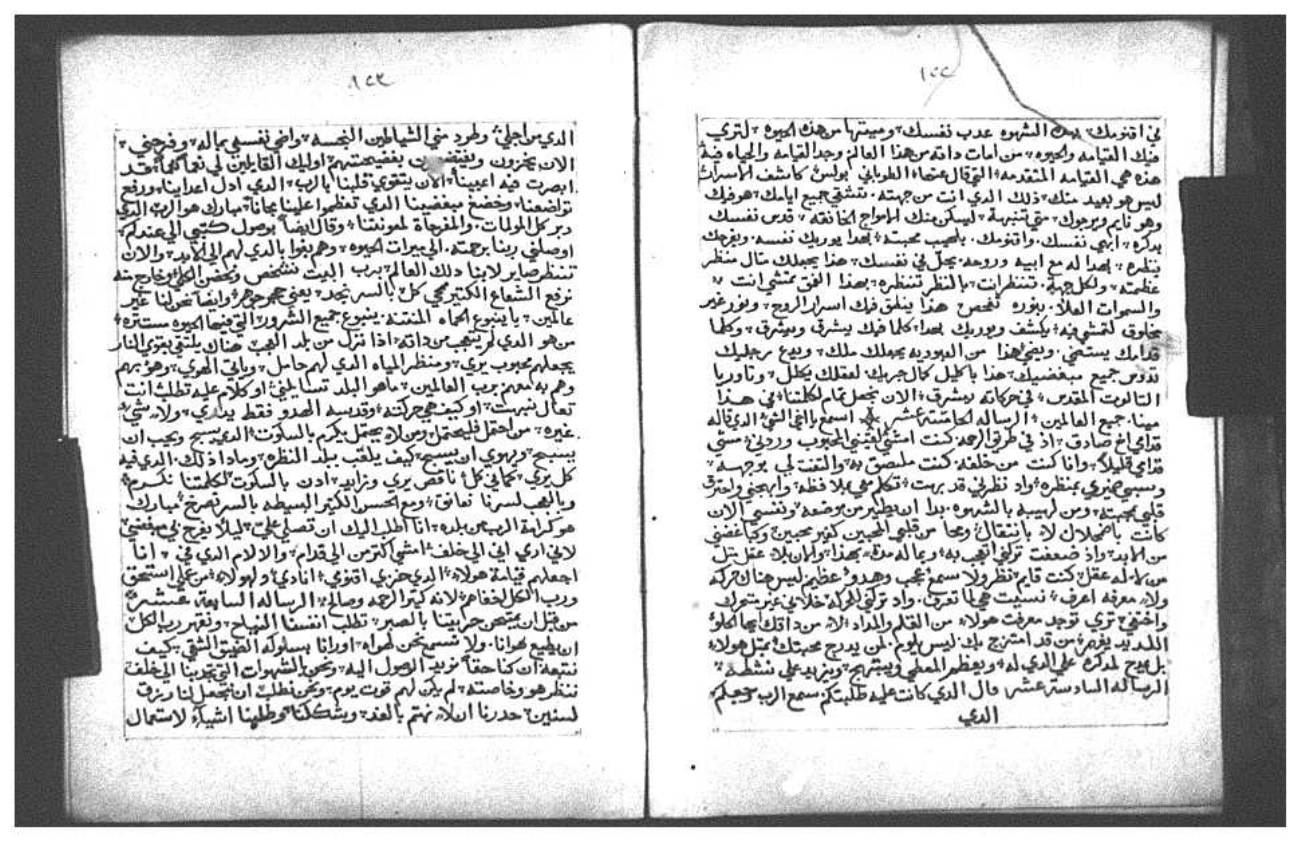 ١٢٢
في اقنومك بهذه الشهوه عدب نفسك وميتها من هذه الحيوه لتري
فيك القيامه والحيوه من امات داته من هذا العالم وجد القيامه والحياه فيه
هذه هي القيامه المتقدمه التي قال عنها الطوباني بولس كاشف الاسرار
ليس هو بعيد منك ذلك الدي انت من جهته تتشقي جميع ايامك هو فيك
وهو نايم ويرجوك متي تنبهه ليسكن منك الامواج الخانقه قدس نفسك
بدكره ابهي نفسك واقنومك بلهيب محبته بهدا يوريك نفسه ويفرحك
بنظره بهدا له مع ابيه وروحه يحل في نفسك هدا يجعلك متال منظر
عظمته ولكل جهة تنتظر انت بالنظر تنتظره بهدا الفق تمشي انت
والسموات العلا بنوره تفحص هذا ينطق فيك اسرار الروح وبنور غير
مخلوق لتمشي فيه يكشف ويوريك بهدا كلما فيك يشرق ويشرق وكلما
قدامك يستضي ويضي هذا من العبوديه يجعلك ملك ويضع رجليك
تدوس جميع مبغضيك هدا باكليل كمال حربك لعقلك يكلل وتاوريا
التالوت المقدس في حركاته يشرق الان يجعل تمام لكلمتنا في هدا
مينا جميع العالمين الرساله الخامسة عشر اسمع يااخي الشي الدي قاله
قدامي اخ صادق اذ في طريق الرحمه كنت امشي لقيني المحبوب وردني مشي
قدامي قليلا وانا كنت من خلفه كنت ملتصق به والتفت لي بوجهه
وسبي ضميري بمنظره واد نظرني قد بهت تكلم معي بلا فظه وابهجني واحترق
قلبي بمحبته ومن لهيبه بالشهوه بدا ان يطير من موضعه ونفسي الان
كانت باضمحلال لا بانتقال ومحا من قلبي المحبين كغير محبين وكباغضي
من الابد واذ ضعفت تركني اتعجب به وبماله مدة بهدا ولمن بلا عقل نتل
من بلا له عقل كنت قايم نظر ولا سمع عجب وهدو عظيم ليس هناك حركه
ولا معرفه اعرف نسيت هي لما تعرف واد تركني للحركه خلا مني غير متحرك
واختفي تري توجد معرفت هولاء من القلم والمداد لا من داقك ايها الحلو
اللديد يفرح من قد امتزج بك ليس يلوم لمن يدرج محبتك بمتل هولاء
بل يبهج لمدكره علي الدي له ويعظم المعطي ويبتهج ويزيد علي نشطه
الرساله السادسة عشر قال الدي كانت عليه طلبتكم سمع الرب وجعلم
الدي
١٢٣
الدي من اجلي وطرد مني الشياطين النجسه واضي نفسي بماله وفرحني
الان يخزون ويفتضحون بفضيحتهم اوليك القايلين لي نعما نعما قد
ابصرت فيه اعيننا الان يتقوي قلبنا بالرب الدي ادل اعداينا ورفع
تواضعنا وخضع مبغضينا الدي تعظموا علينا مجانا مبارك هو الرب الدي
دبر كل المولمات والمفرحاة لمعونتنا وقال ايضا بوصول كتبي الي عندكم
اوصلني ربنا برحمته الي ميرات الحيوه وهم بقوا بالدي لهم الي الابد والان
ننتظر صابر لابنا دلك العالم برب البيت نشخص ونحضن الكل وخارج منه
نرفع الشعاع الكتير محي كل بالسر نجد يعني جوهر وايضا نحولنا غير
عالمين يا ينبوع الحماه المنتنه ينبوع جميع الشرور التي فيها الحيوه مستتره
من هو الدي لم يتعجب من داته اذا نزل من بلد العجب هناك يلتقي بقوي النار
يجعلهم محبوب يري ومنظر المياه الدي لهم حامل وياتي الهوي وهو بهم
وهم به معهم يرب العالمين ماهو البلد تسايلني او كلام عليه تطلب انت
تعال تبهت او كيف هي حركته وقدسه الهدو فقط يداري ولا شي
غيره من احتمل فليحتمل ومن لا يحتمل يكرم بالسكوت الدي يسبح ويجب ان
يسبح ويهوي ان يسبح كيف يلقب بلد النظره وماد اذ لك الدي فيه
كل يري كماني كل ناقص يري وزايد ادن بالسكوت لكلمتنا نكرم
وبالعجب لسرنا نعانق ومع الحسن الكتير البسيطه بالسر نصرخ مبارك
هو كرامة الرب من بلده انا اطلب اليك ان تصلي علي ليلا يفرح بي مبغضي
لاني اري اني الي خلف امشي اكتر من الي قدام والالام الدي في انا
اجعلهم قيامة هولاء الدي حزبي اقنومي انادي ولهولاء من علي استحق
ورب الكل لخفاهم لانه كتير الرحمه وصالح الرساله السابعة عشر
من قبل ان يمتحن حرابتنا بالصبر نطلب انفسنا النياح ونقهر رب الكل
ان يطيع لهوانا ولا نسمع نحن لهواه اورانا بسلوكه الضيق الشقي كيف
نتبعه ان كنا حقا نريد الوصول اليه ونحن بالشهوات التي تجدبنا الي خلف
ننظر هو وخاصته لم يكن لهم قوت يوم ونحن نطلب ان نجعل لنا رزق
لسنين حدرنا ان لا نهتم بالغد ويشككنا وطلبنا اشياء لاستعمال